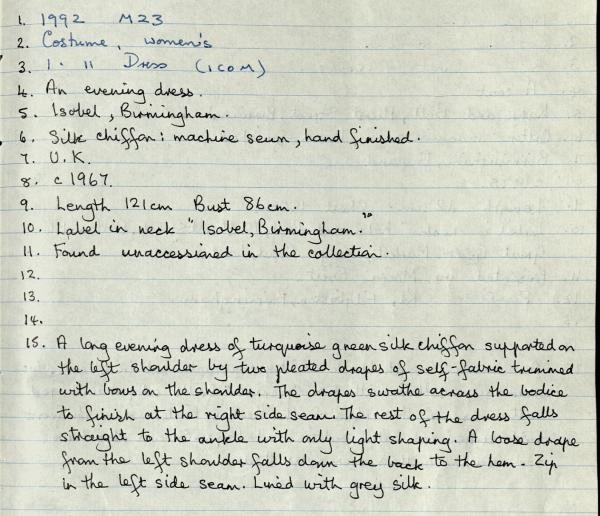 1. 1992 M23
2. Costume, women's
3. 1.11 Dress (ICOM)
4. An evening dress.
5. Isobel, Birmingham.
6. Silk chiffon: machine sewn, hand finished.
7. U.K.
8. c 1967.
9. Length 121cm Bust 86cm.
10. Label in neck "Isobel, Birmingham."
11. Found unaccessioned in the collection.
12.
13.
14.
15. A long evening dress of turquoise green silk chiffon supported on
the left shoulder by two pleated drapes of self-fabric trimmed
with bows on the shoulder. The drapes swathe across the bodice
to finish at the right side seam. The rest of the dress falls
straight to the ankle with only light shaping. A loose drape
from the left shoulder falls down the back to the hem. Zip
in the left side seam. Lined with grey silk.